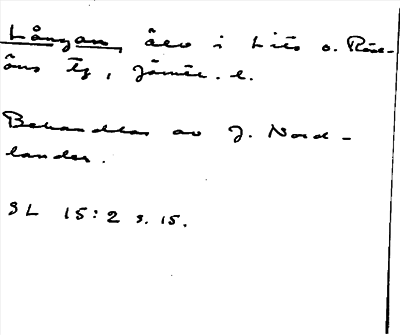 Långan, älv i Lits o. Röd-
öns tg, Jämtl. l.
Behandlas av J. Nord-
lander.
SL 15:2 s. 15.